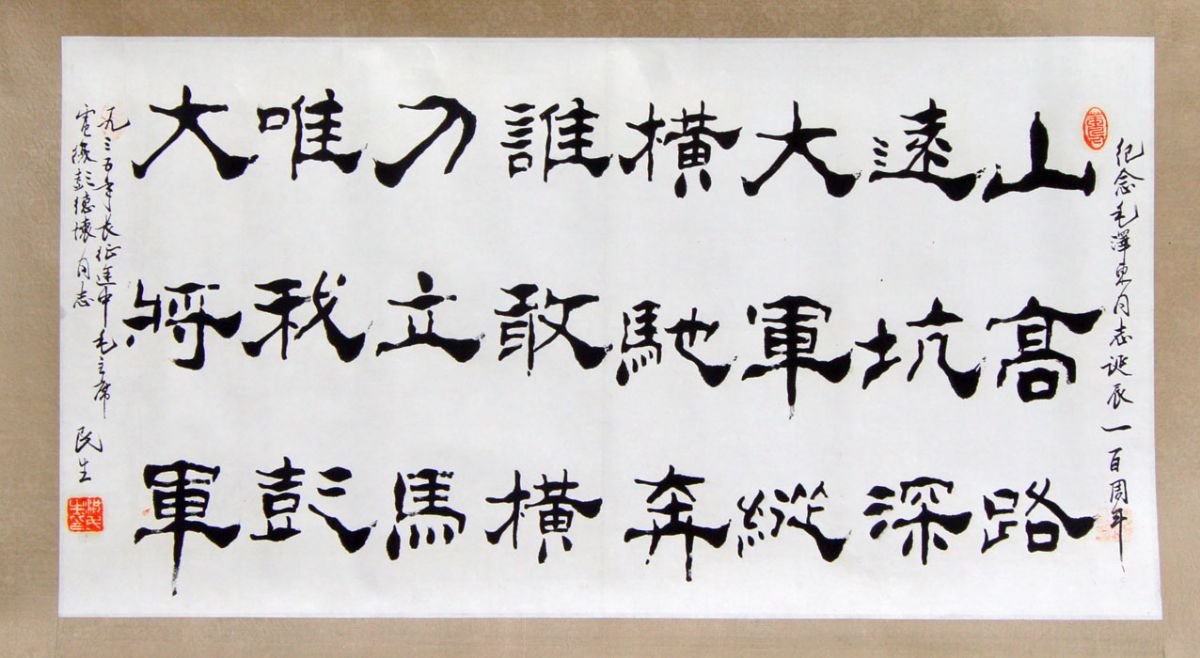 纪念毛澤東同志诞辰一百周年
山髙路
遠坑深
大軍縱
横馳奔
誰敢横
刀立馬
唯我彭
大將軍
一九三五年长征途中毛主席
彭德懷同志
民生